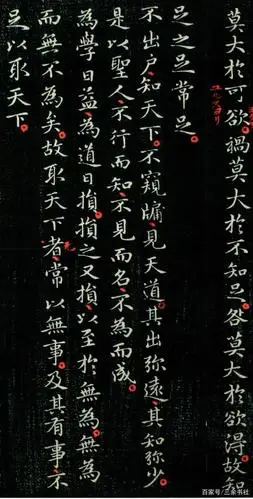 莫大於可欲禍莫大於不知足咎莫大於欲得故知
足之足常足
不出户知天下不窺牖見天道其出弥遠其知弥少
是以聖人不行而知不見而名不為而成
為學日益為道日損損之又損以至於無為無為
而無不為矣故取天下者常以無事及其有事不
足以取天下
百家号/三余书社